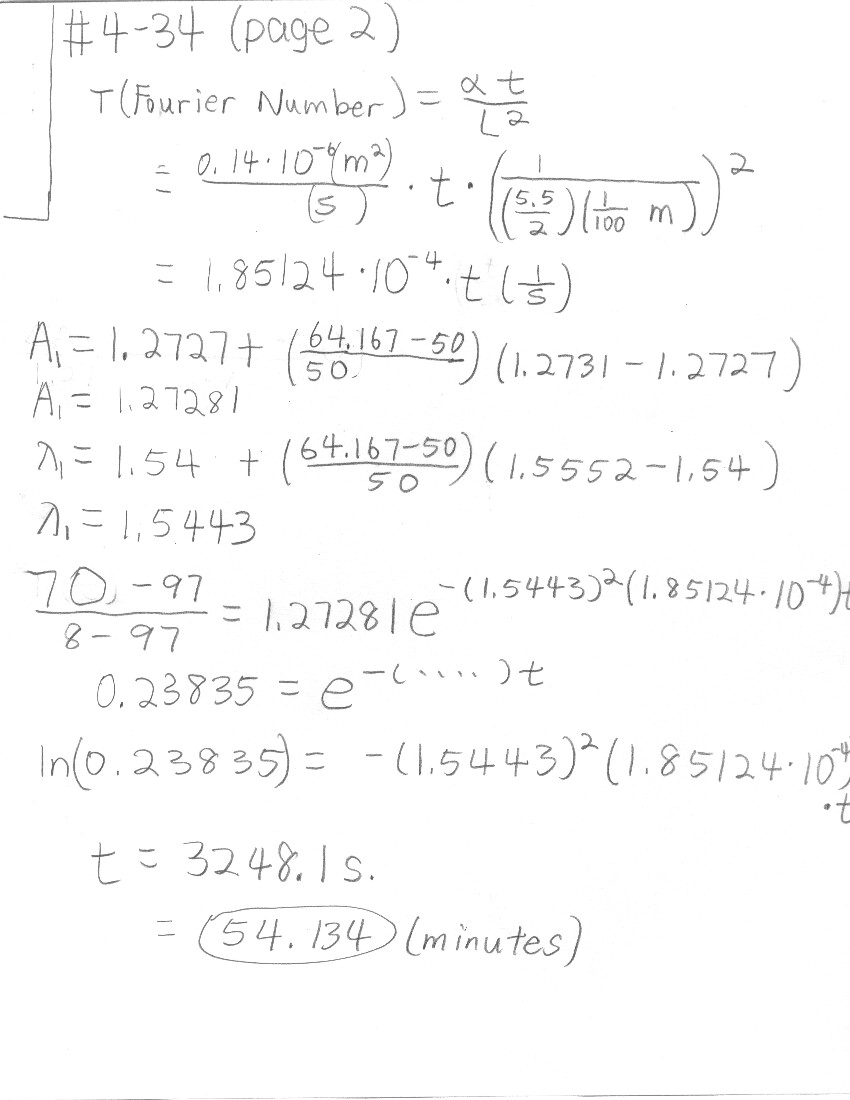 #4-34 (page 2)
T(Fourier Number) = αt/L²
= 0.14·10⁻⁶(m²)/(s) · t · (1/((5.5/2)(1/100 m)))²
= 1.85124·10⁻⁴·t (1/s)
A₁ = 1.2727 + ((64.167-50)/50) (1.2731 - 1.2727)
A₁ = 1.27281
λ₁ = 1.54 + ((64.167-50)/50) (1.5552 - 1.54)
λ₁ = 1.5443
(70. - 97)/(8 - 97) = 1.27281e^(-(1.5443)²(1.85124·10⁻⁴)t)
0.23835 = e^(-(.....)t)
ln(0.23835) = -(1.5443)²(1.85124·10⁻⁴)
·t
t = 3248.1 s.
= 54.134 (minutes)